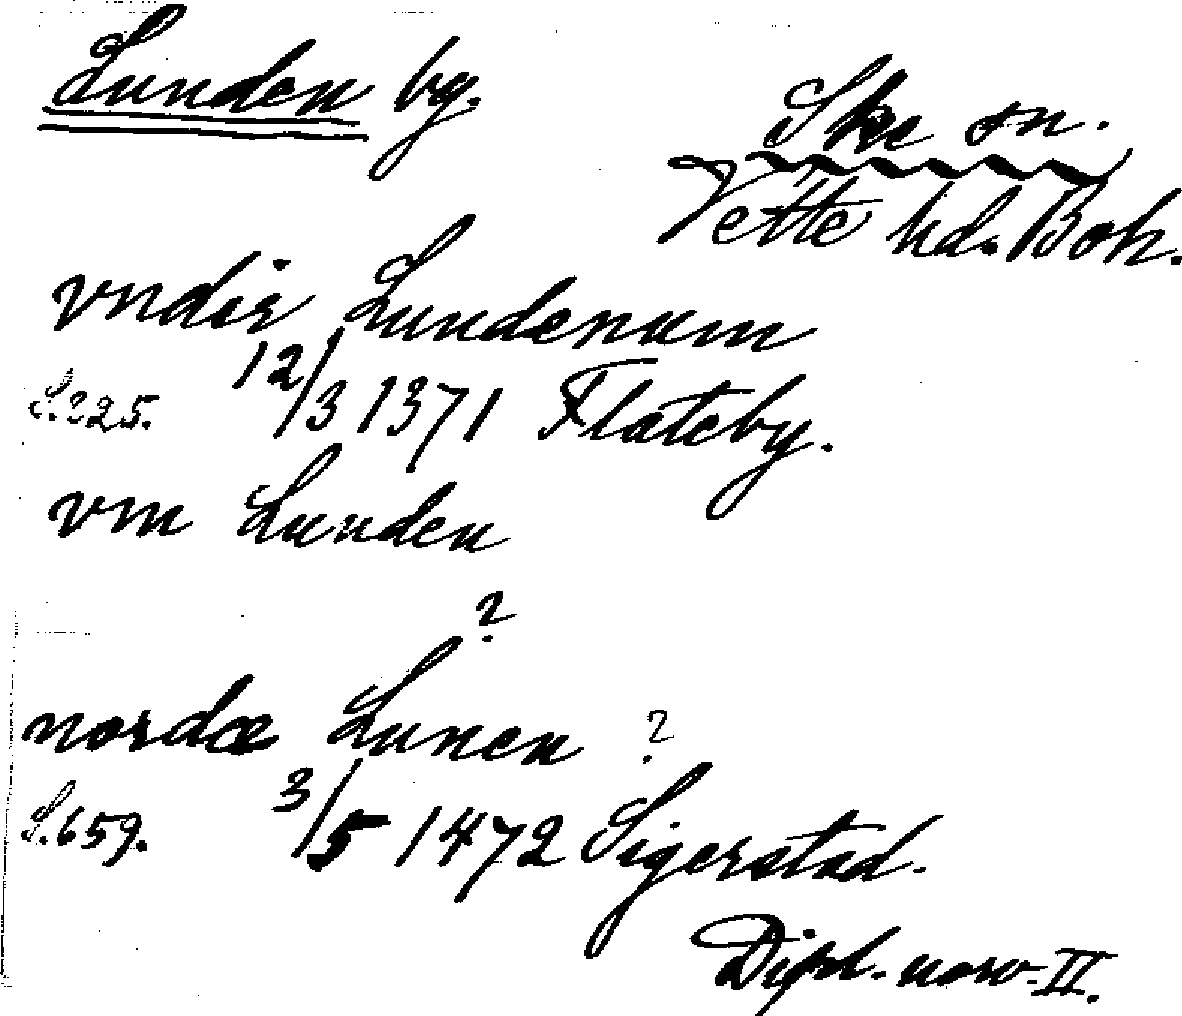 Lunden bg.
Ske sn.
Vette hd. Boh.
vndir Lundenum
S. 325. 12/3 1371 Flateby.
vm Lunden
?
nordæ Lunen ?
S. 659. 3/5 1472 Sigerstad.
Dipl. norv. II.